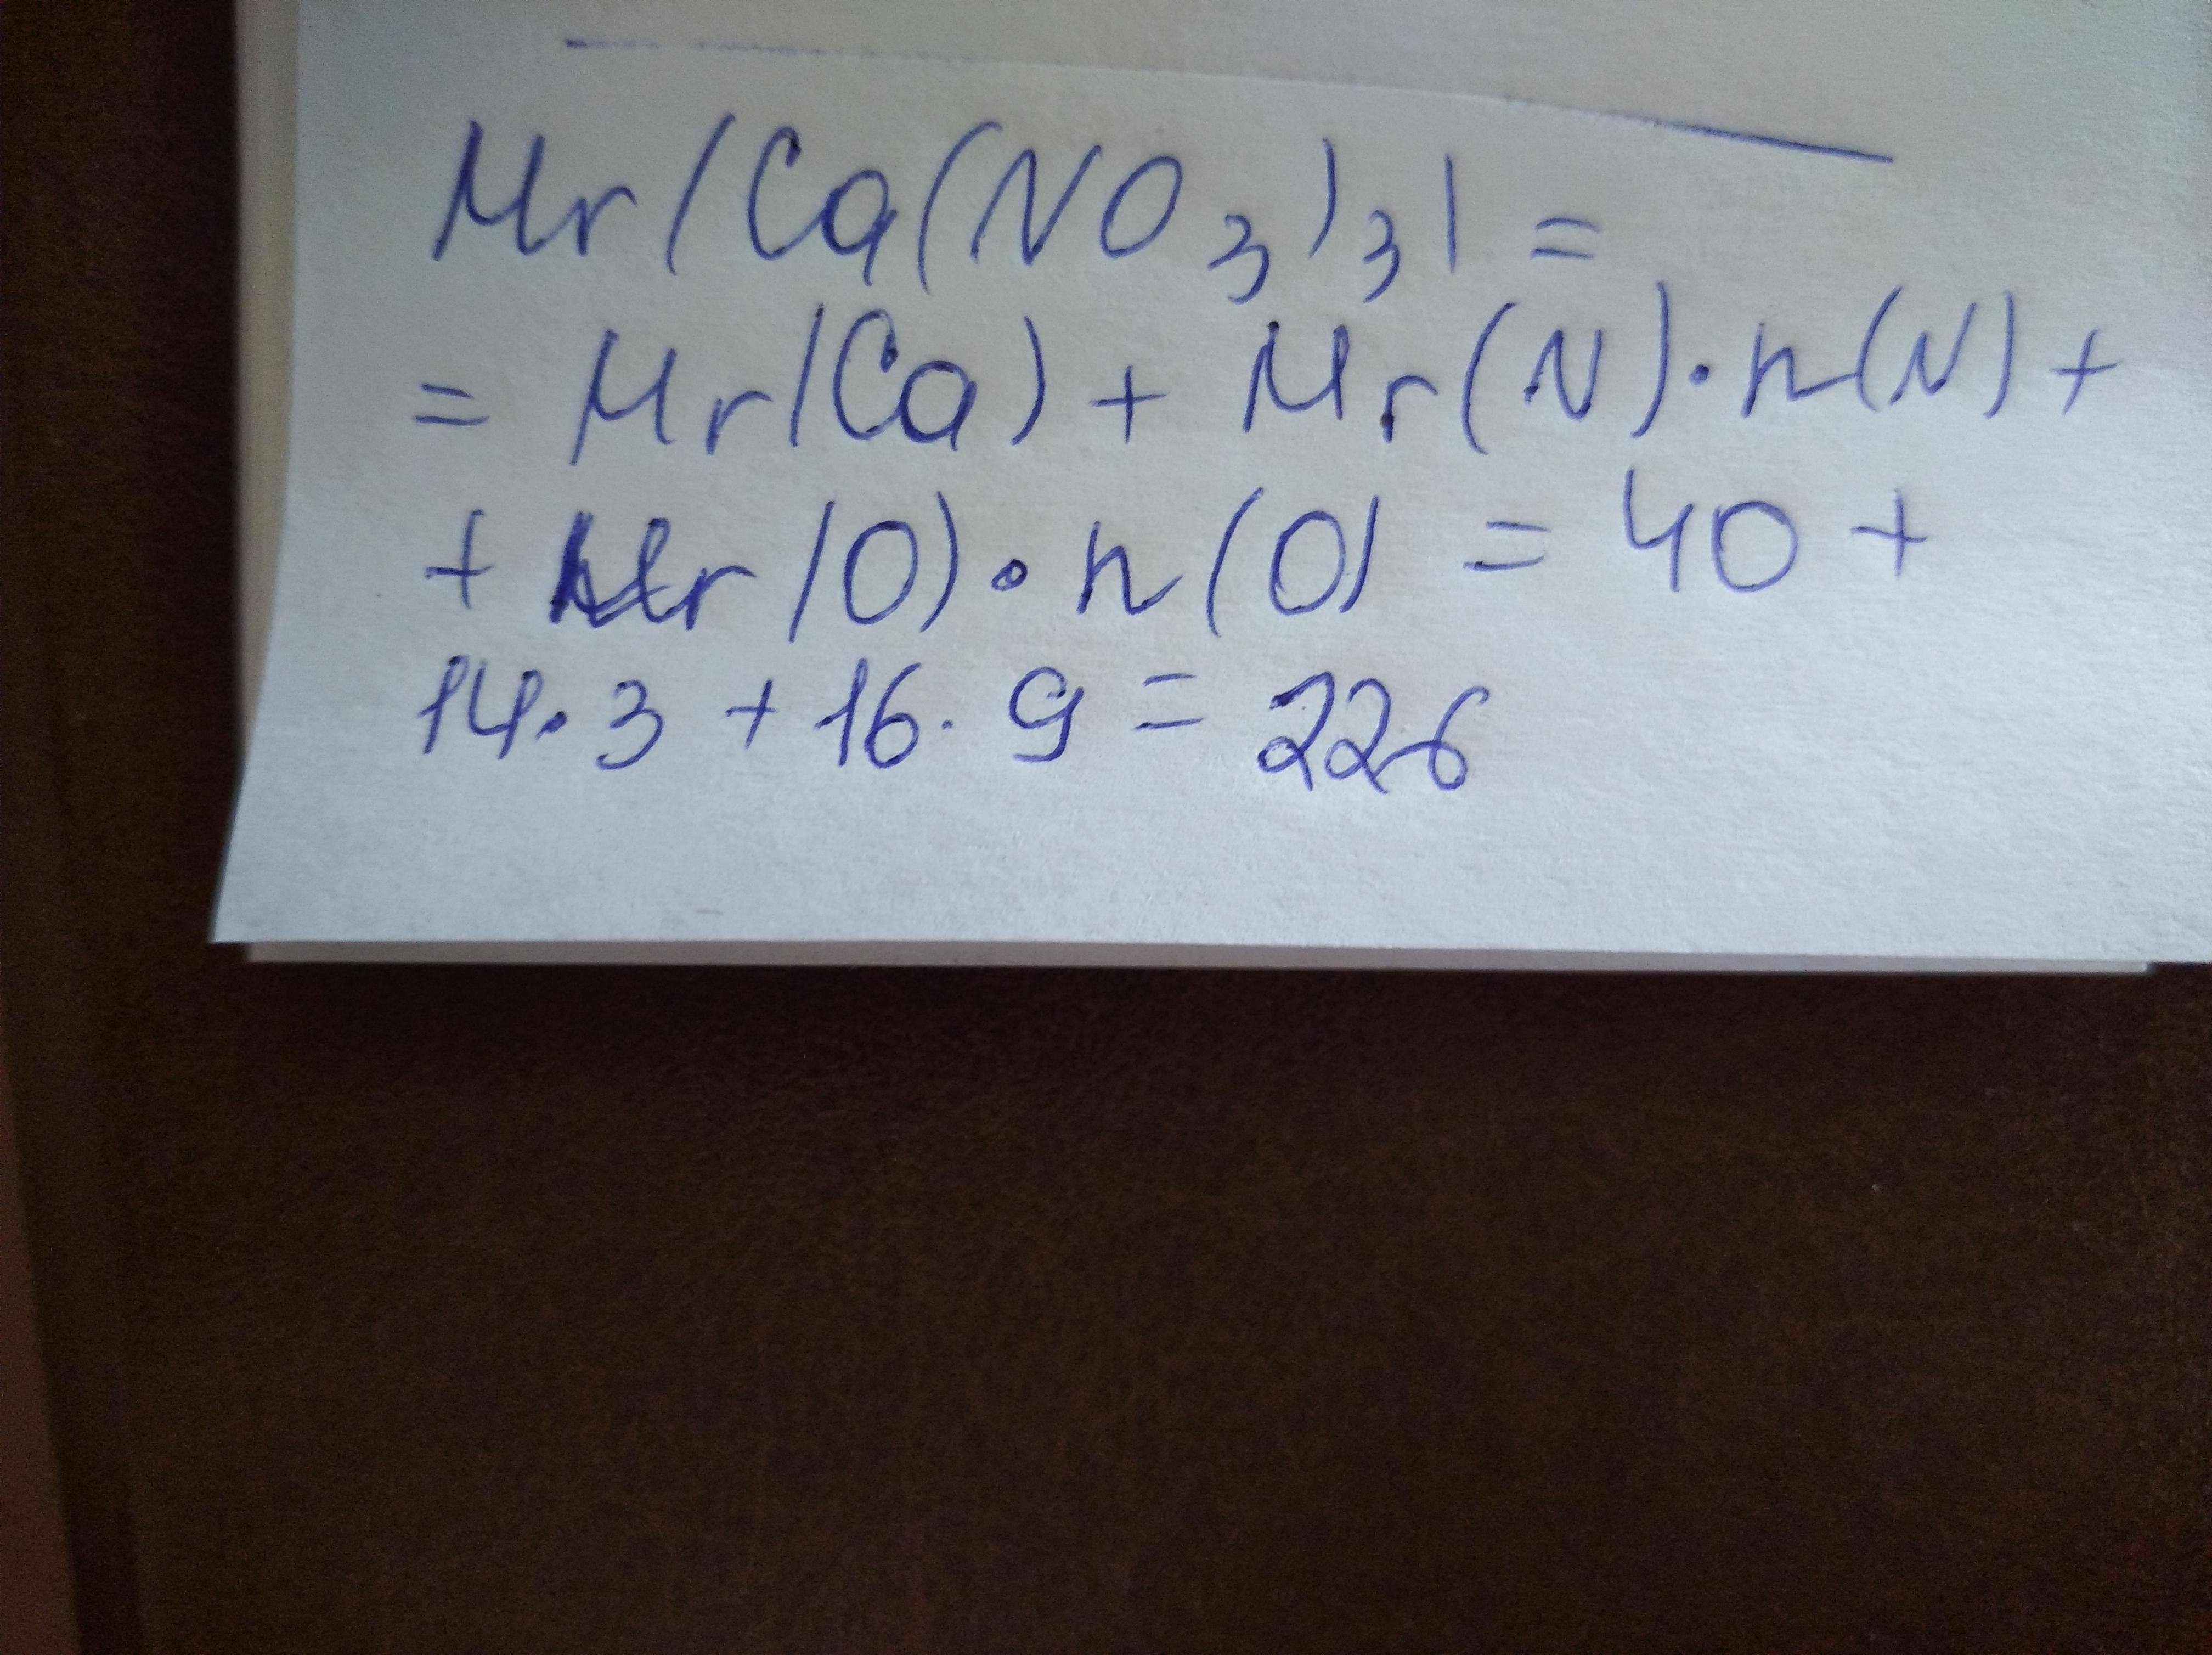 Mr(Ca(NO₃)₃) =
= Mr(Ca) + Mr(N)·n(N) +
+ Mr(O)·n(O) = 40 +
14·3 + 16·9 = 226